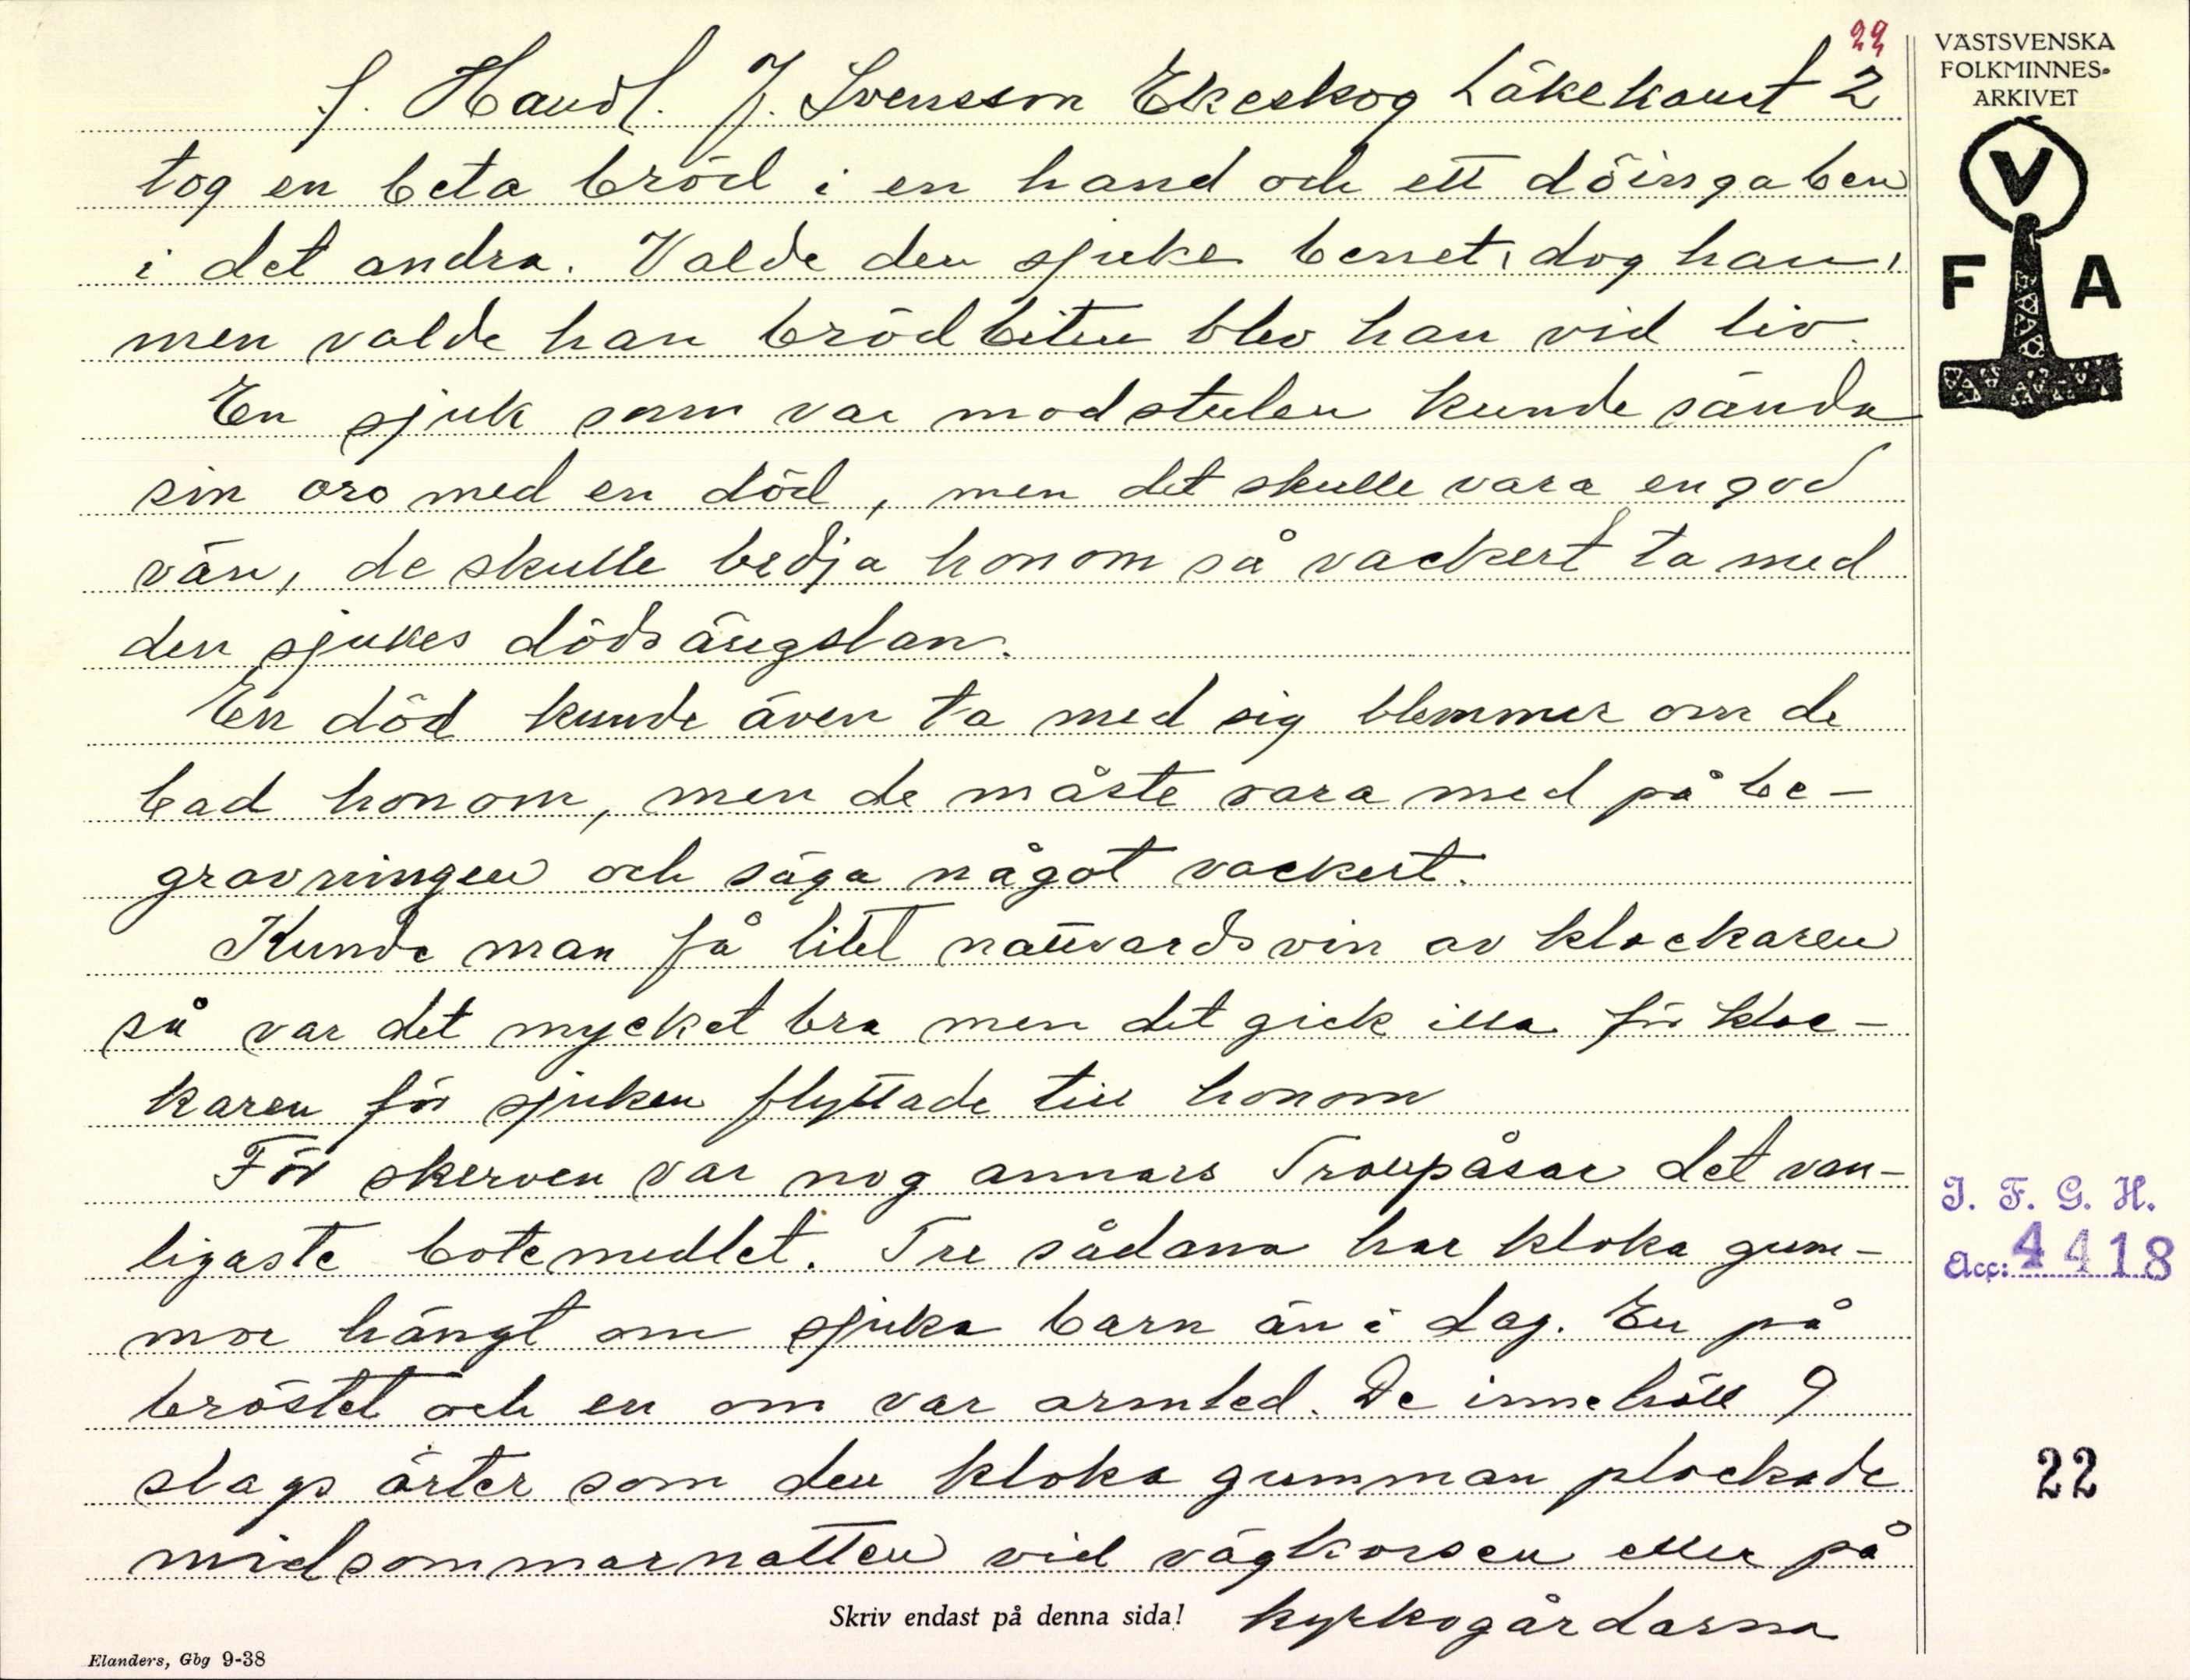 22
f. Handl. J. Svensson Ekeskog Läkekonst 2
tog en beta bröd i en hand och ett döingaben
i det andra. Valde den sjuke benet, dog han,
men valde han brödbiten blev han vid liv.
En sjuk som var modstulen kunde sända
sin oro med en död, men det skulle vara en god
vän, de skulle bedja honom så vackert ta med
den sjukes dödsängslan.
En död kunde även ta med sig blemmer om de
bad honom, men de måste vara med på be-
gravningen och säga något vackert.
Kunde man få litet nattvardsvin av klockaren
så var det mycket bra men det gick illa för kloc-
karen för sjuken flyttade till honom
För skerven var nog annars Trollpåsar det van-
ligaste botemedlet. Tre sådana har kloka gum-
mor hängt om sjuka barn än i dag. En på
bröstet och en om var armled. De innehöll 9
slags örter som den kloka gumman plockade
midsommarnatten vid vägkorsen eller på
kyrkogårdarna
Skriv endast på denna sida!
Elanders, Gbg 9-38
VÄSTSVENSKA
FOLKMINNES-
ARKIVET
V
F A
I. F. G. H.
Acc: 4418
22